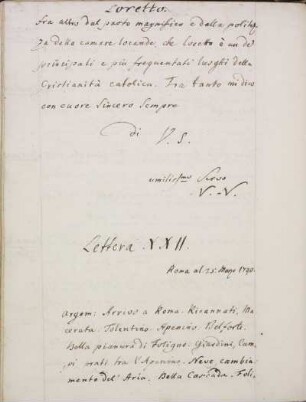 Loretto.
fra altro dal pasto magnifico e dalle polite
za delle camere locande, che Loreto è un de'
principali e più frequentati luoghi della
Cristianità catolica. Fra tanto mi dico
con cuore sincero sempre
di V. S.
umiliss:mo Servo
N.-N.
Lettera XXII.
Roma al 25. Marzo 1740.
Argom: Arrivo a Roma. Recannati, Ma
cerata. Tolentino. Apenino. Belforte.
Bella pianura di Foligno. Giardini, Cam
pi orati tra l'Apenino. Neve, cambia
mento del' Aria. Bella Cascada. Foli